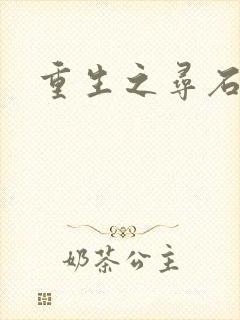 重生之寻石
奶茶公主